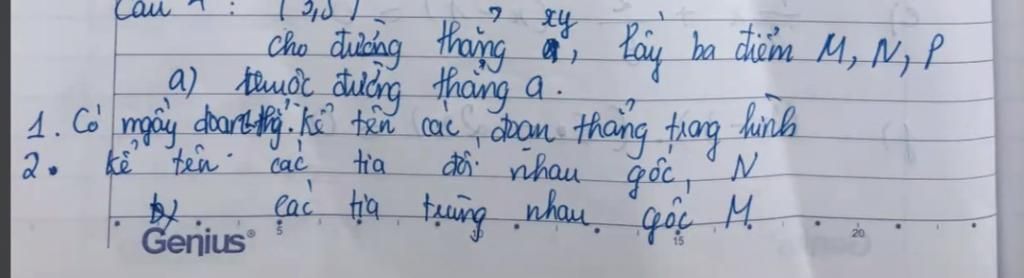 Câu 4 : (3,5)
xy
cho đường thẳng a, Lấy ba điểm M, N, P
a) thuộc đường thẳng a.
1. Có mấy đoạn thg. Kể tên các đoạn thẳng trong hình
2. kể tên các tia đối nhau gốc, N
b) các tia trùng nhau gốc M.
Genius®
5
15
20